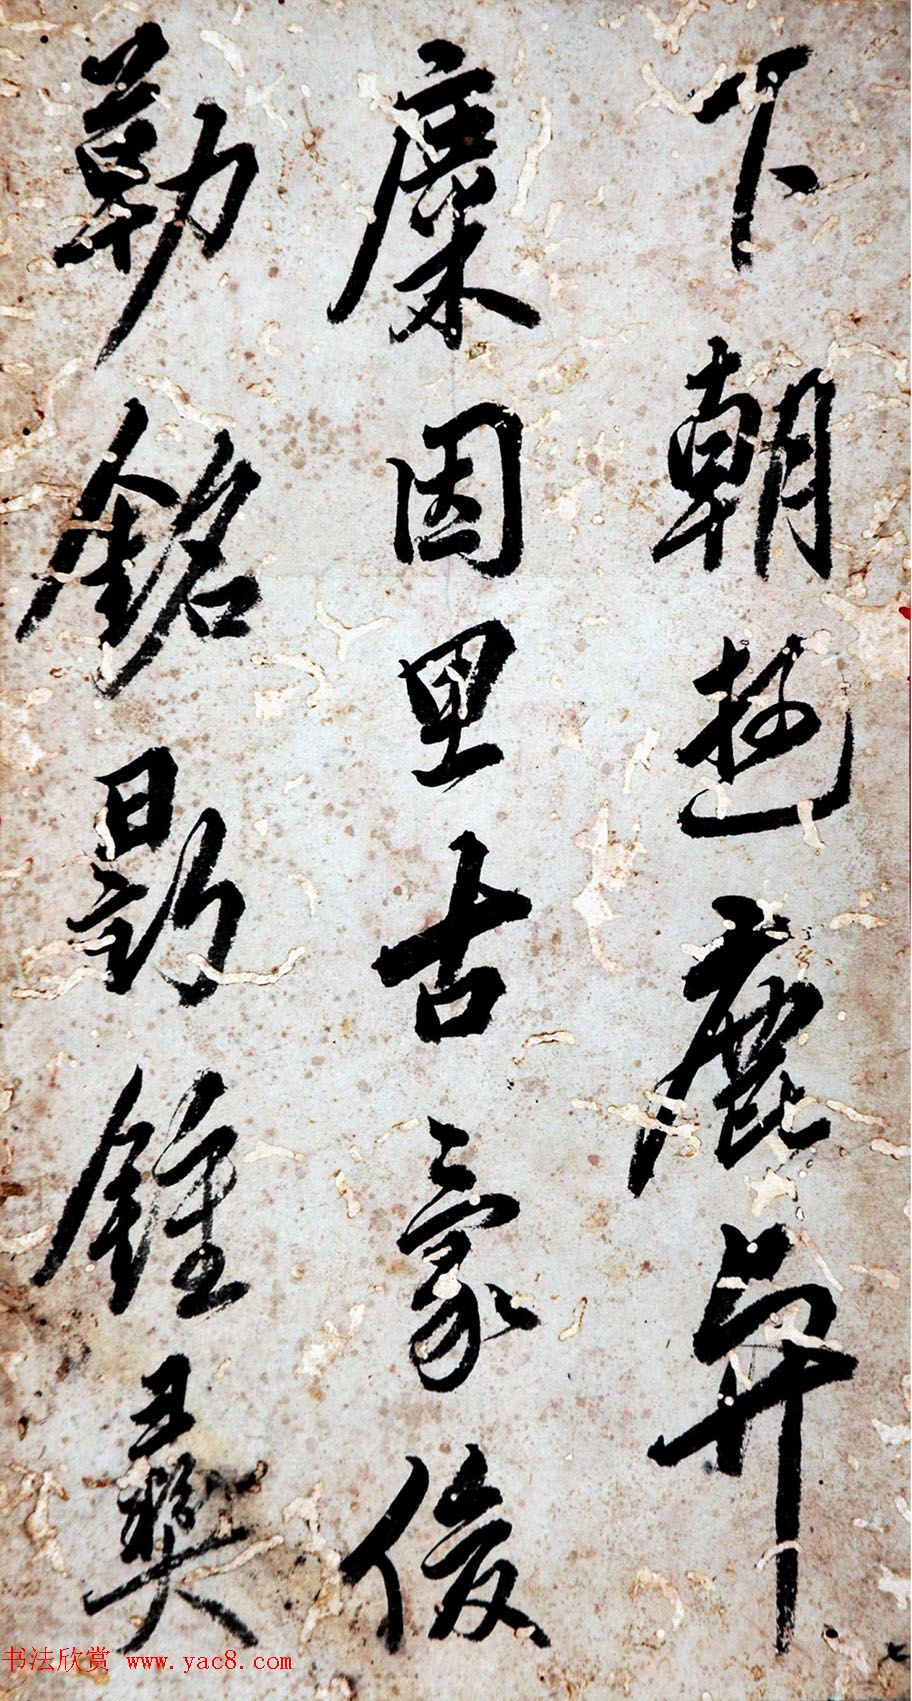 下朝遊鹿與
麋因里古豪俊
勒銘鍾彝
书法欣赏 www.yac8.com